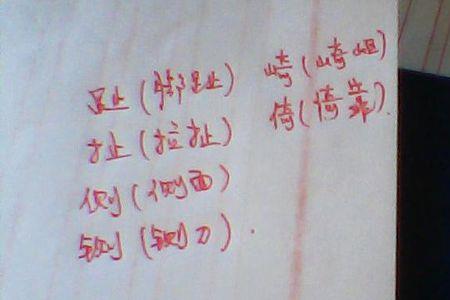 趾(脚趾)
扯(拉扯)
侧(侧面)
铡(铡刀).
崎(崎岖)
倚(倚靠).